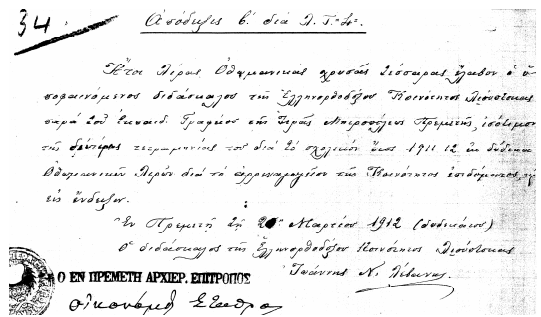 34
Απόδειξις β.' διά Λ. Τ. 4
Ήτοι Λίρας Οθωμανικάς χρυσάς τέσσαρας έλαβον ο υ-
ποφαινόμενος διδάσκαλος της Ελληνορθοδόξου Κοινότητος Λιούστσκας
παρά του Εκπαιδ. Γραφείου της Ιεράς Μητροπόλεως Πρεμετής, ισότιμον
της δευτέρας τετραμηνίας του διά το σχολικόν έτος 1911-12 εκ δώδεκα
Οθωμανικών Λιρών διά το αρρεναγωγείον της Κοινότητος επιδόματος,
εις ένδειξιν.
Εν Πρεμετή τη Μαρτίου 1912 (δωδεκάτου)
Ο διδάσκαλος της Ελληνορθοδόξου Κοινότητος Λιούστσκας
Ιωάννης Ν.
Ο ΕΝ ΠΡΕΜΕΤΗ ΑΡΧΙΕΡ. ΕΠΙΤΡΟΠΟΣ